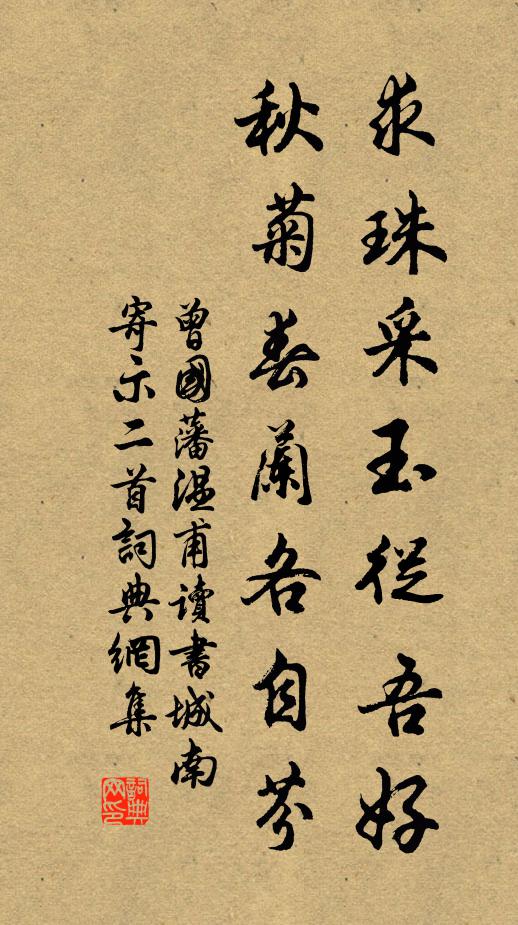 求珠采玉從吾好
秋菊春蘭各自芬
曾國藩溫甫讀書城南
寄示二首詞典網集
詞典
网印